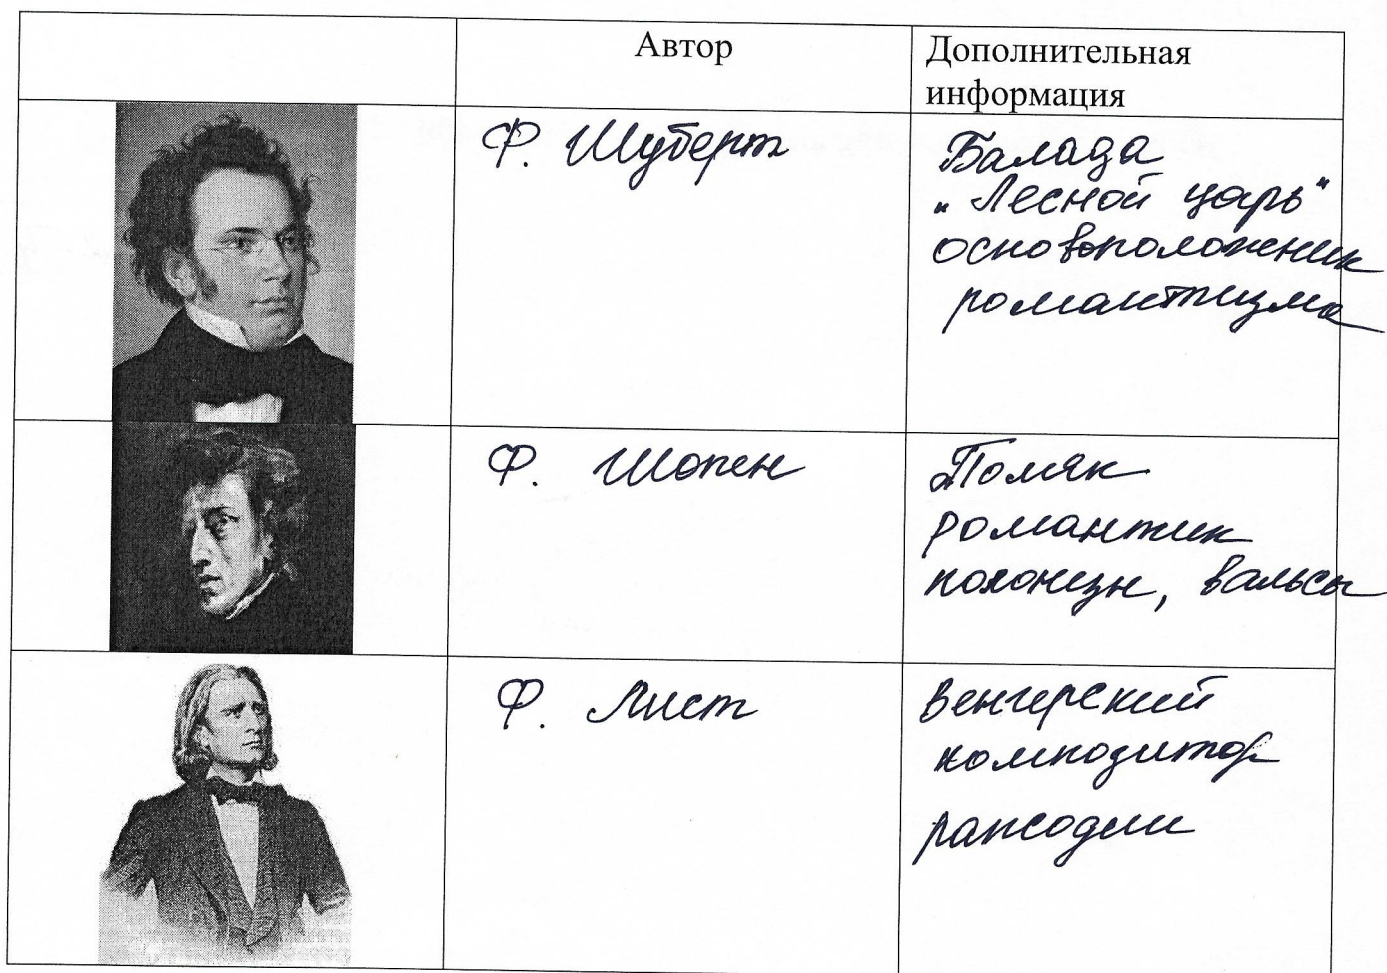 Автор
Дополнительная
информация
Ф. Шуберт
Балада
„Лесной царь"
основоположник
романтизма
Ф. Шопен
Поляк
романтик
полонезы, вальсы
Ф. Лист
Венгерский
композитор
рапсодии